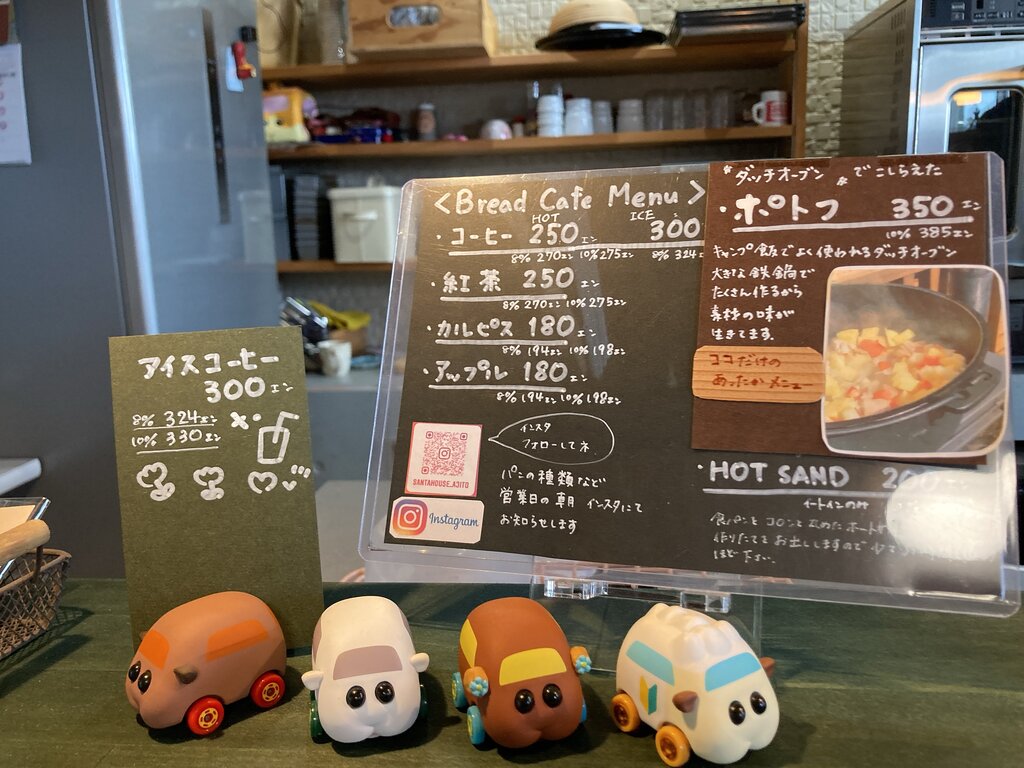 アイスコーヒー
300エン
8% 324エン
10% 330エン
<Bread Cafe Menu>
HOT ICE
・コーヒー 250エン 300
8% 270エン 10% 275エン 8% 324エ
・紅茶 250エン
8% 270エン 10% 275エン
・カルピス 180エン
8% 194エン 10% 198エン
・アップル 180エン
8% 194エン 10% 198エン
インスタ
フォローしてネ
SANTAHOUSE_AJITO
Instagram
パンの種類など
営業日の朝 インスタにて
お知らせします
"ダッチオーブン"でこしらえた
・ポトフ 350エン
10% 385エン
キャンプ飯でよく使われるダッチオーブン
大きな鉄鍋で
たくさん作るから
素材の味が
生きてます。
ココだけの
あったかメニュー
・HOT SAND
イートインのみ
食パンを
作りたてをお出ししますので
ほど下さい。